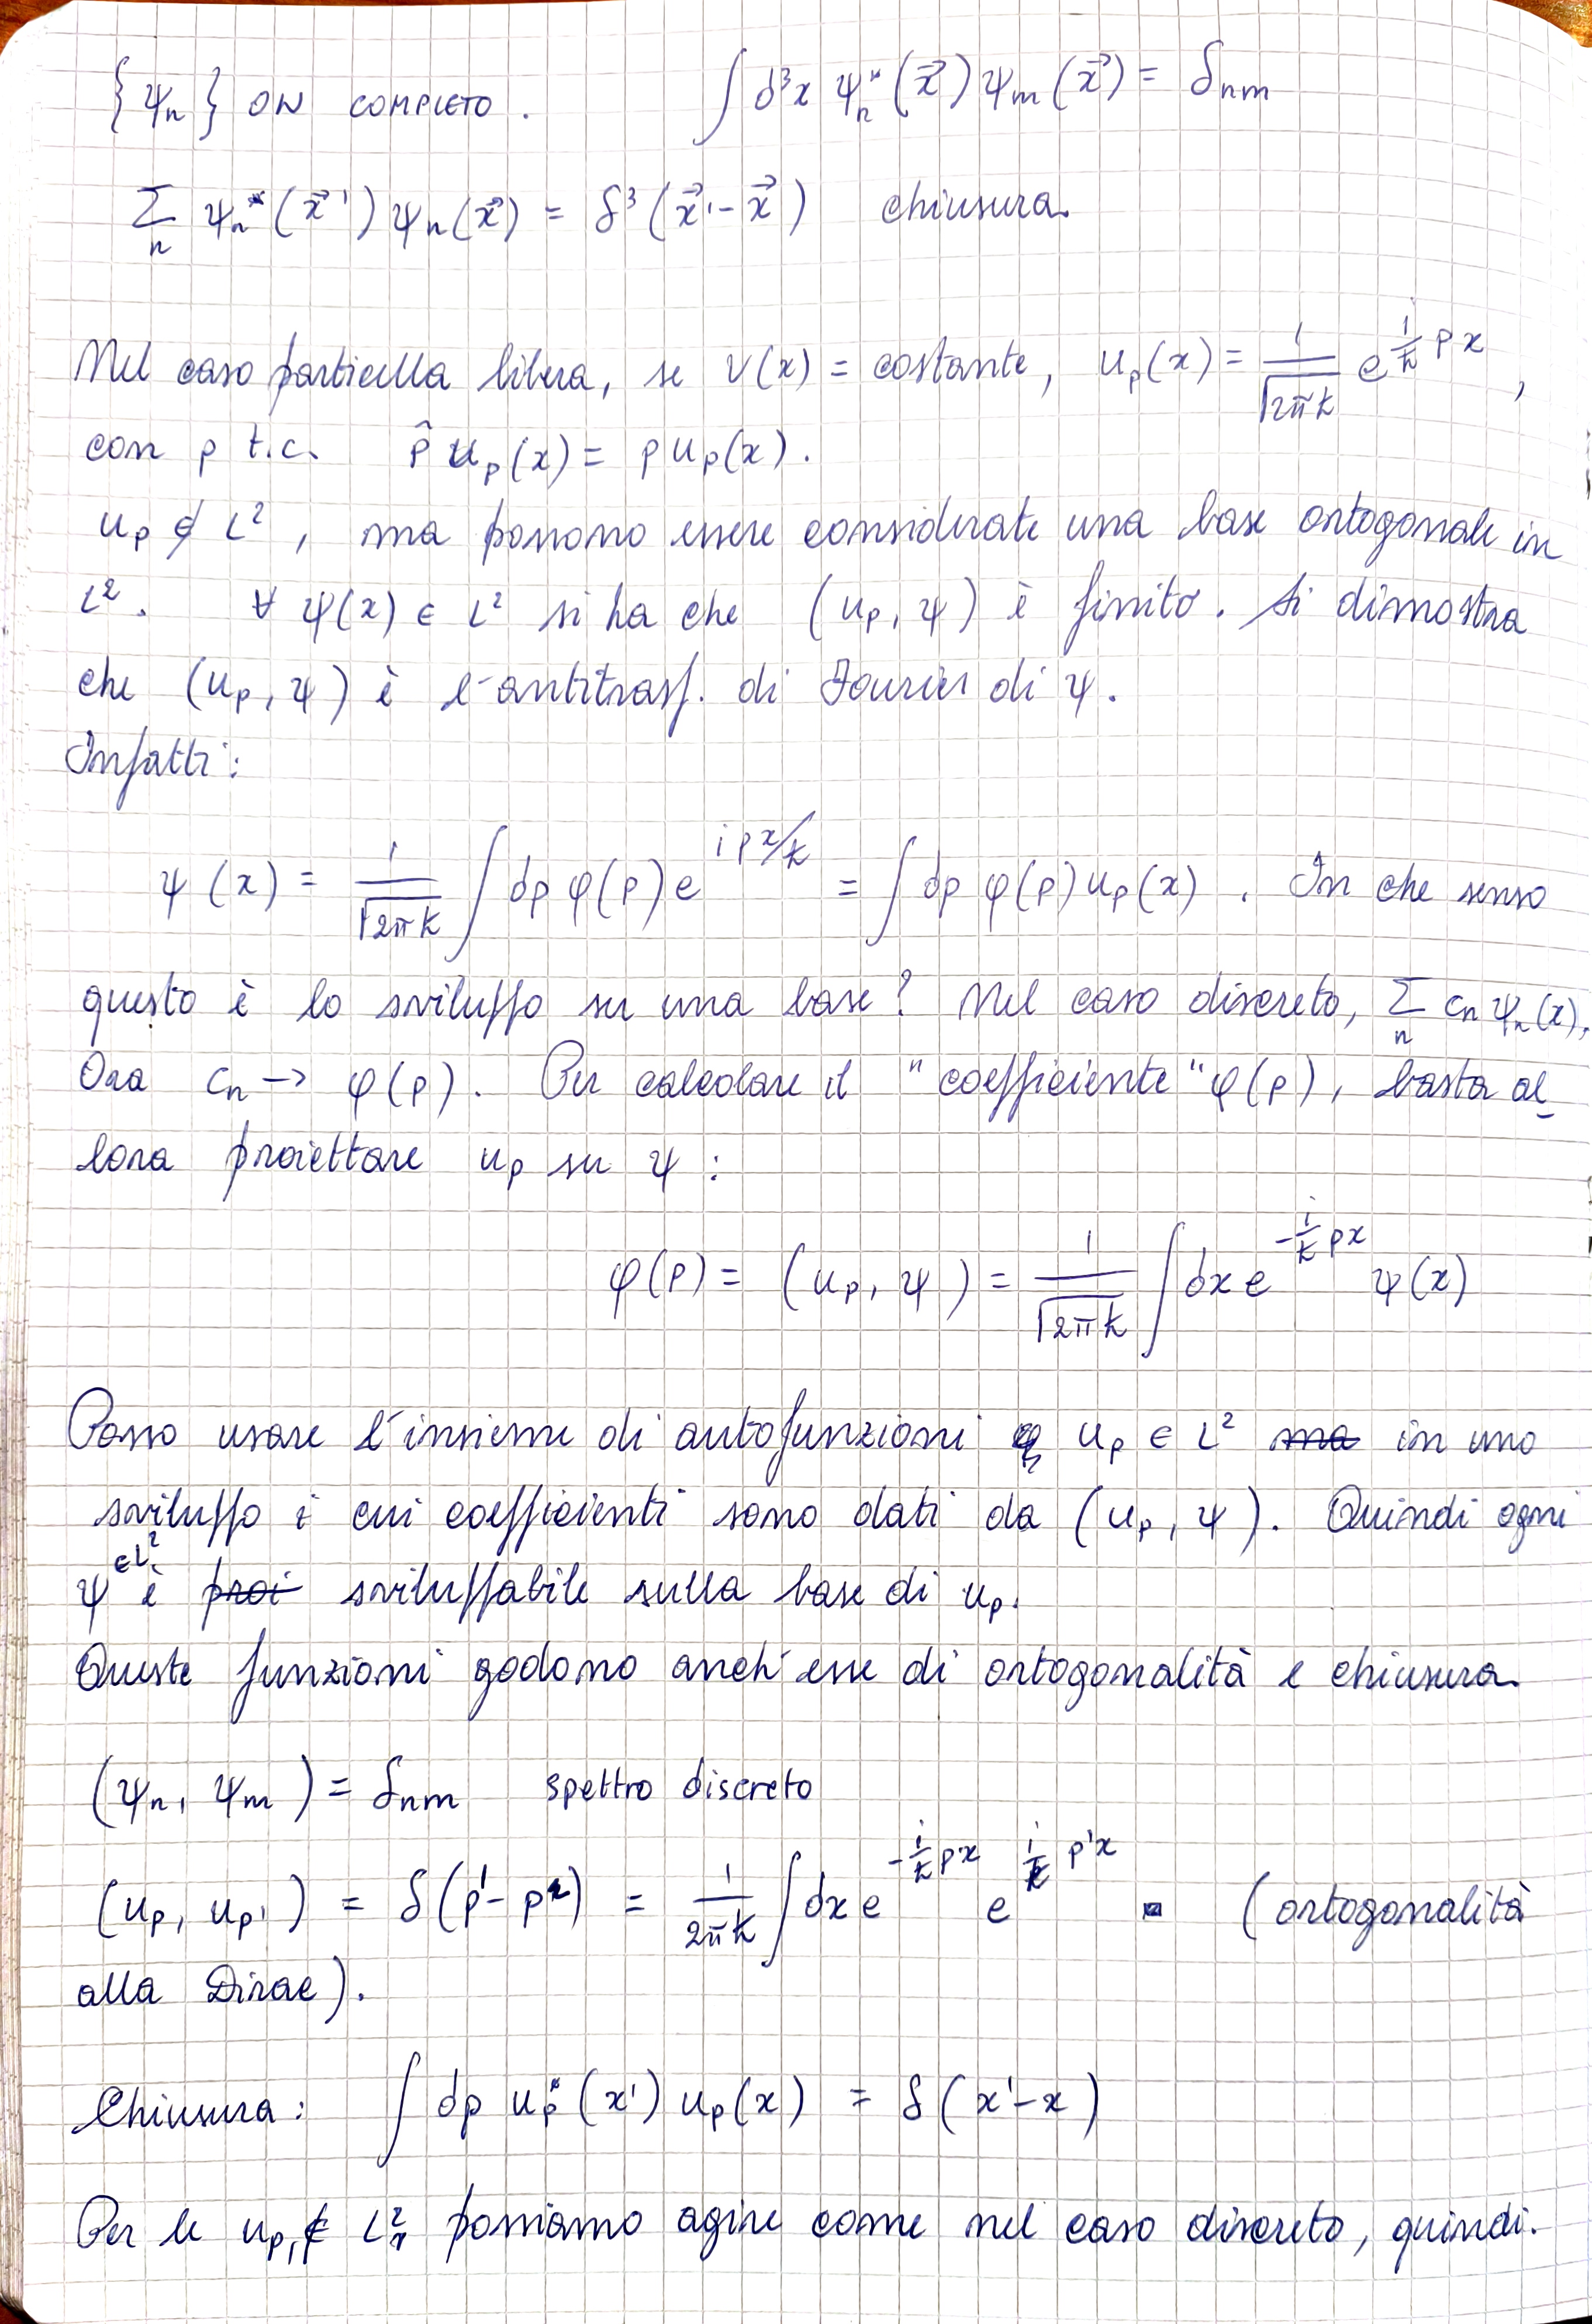 {ψₙ} ON COMPLETO. ∫ d³x ψₙ*(x⃗) ψₘ(x⃗) = δₙₘ
Σₙ ψₙ*(x⃗') ψₙ(x⃗) = δ³(x⃗' - x⃗) chiusura.
Nel caso particella libera, se V(x) = costante, u_p(x) = 1/√(2πħ) e^{i/ħ px},
con p t.c. p̂ u_p(x) = p u_p(x).
u_p ∉ L², ma possono essere considerate una base ortogonale in
L². ∀ ψ(x) ∈ L² si ha che (u_p, ψ) è finito. Si dimostra
che (u_p, ψ) è l'antitrasf. di Fourier di ψ.
Infatti:
ψ(x) = 1/√(2πħ) ∫ dp φ(p) e^{ipx/ħ} = ∫ dp φ(p) u_p(x). In che senso
questo è lo sviluppo su una base? Nel caso discreto, Σₙ cₙ ψₙ(x).
Ora cₙ → φ(p). Per calcolare il "coefficiente" φ(p), basta al_
lora proiettare u_p su ψ:
φ(p) = (u_p, ψ) = 1/√(2πħ) ∫ dx e^{-i/ħ px} ψ(x)
Posso usare l'insieme di autofunzioni u_p ∈ L² ma in uno
sviluppo i cui coefficienti sono dati da (u_p, ψ). Quindi ogni
ψ ∈L² è proi sviluppabile sulla base di u_p.
Queste funzioni godono anch'esse di ortogonalità e chiusura.
(ψₙ, ψₘ) = δₙₘ spettro discreto
(u_p, u_p') = δ(p' - p) = 1/2πħ ∫ dx e^{-i/ħ px} e^{i/ħ p'x} (ortogonalità
alla Dirac).
Chiusura: ∫ dp u_p*(x') u_p(x) = δ(x' - x)
Per le u_p, ∉ L², possiamo agire come nel caso discreto, quindi.